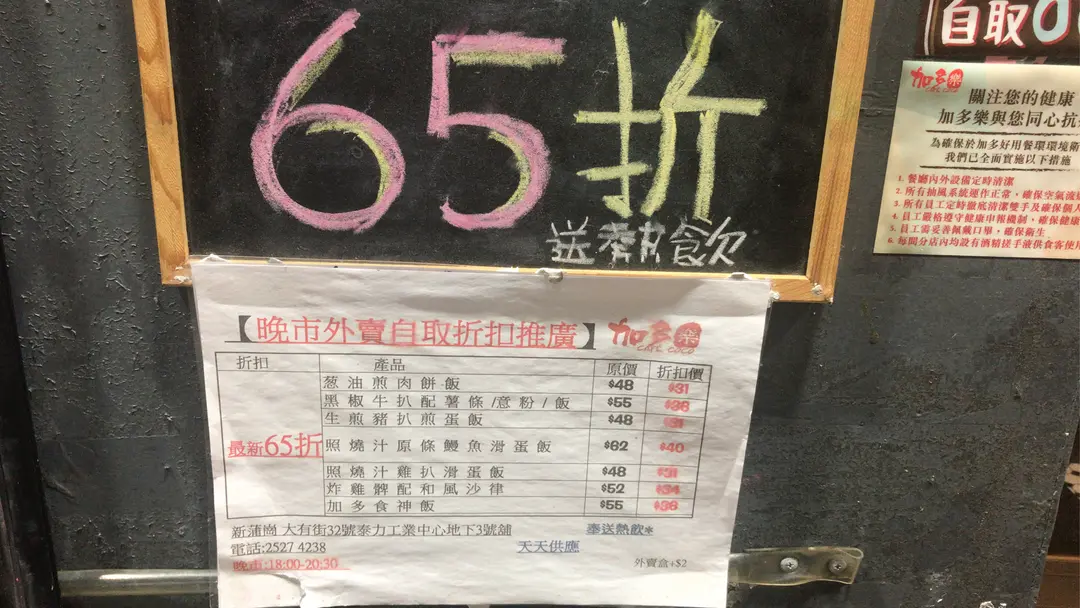 65折
送熱飲
自取
加多樂
CAFE COCO
關注您的健康
加多樂與您同心抗
為確保於加多好用餐環環境衛
我們已全面實施以下措施
1. 餐廳內外設備定時清潔
2. 所有抽風系統運作正常，確保空氣流
3. 所有員工定時徹底清潔雙手及確保個人
4. 員工嚴格遵守健康申報機制，確保健康
5. 員工需妥善佩戴口罩，確保衛生
6. 每間分店內均設有酒精搓手液供食客使用
【晚市外賣自取折扣推廣】 加多樂
CAFE COCO
折扣 產品 原價 折扣價
最新65折
葱油煎肉餅飯 $48 $31
黑椒牛扒配薯條/意粉/飯 $55 $36
生煎豬扒煎蛋飯 $48 $31
照燒汁原條鰻魚滑蛋飯 $62 $40
照燒汁雞扒滑蛋飯 $48 $31
炸雞髀配和風沙律 $52 $34
加多食神飯 $55 $36
新蒲崗 大有街32號泰力工業中心地下3號舖 奉送熱飲*
電話:2527 4238 天天供應
晚市:18:00-20:30 外賣盒+$2